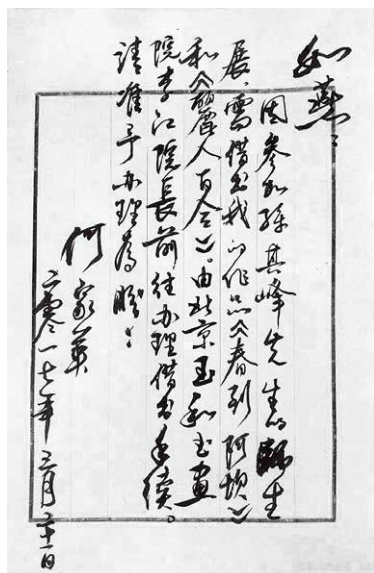 如燕：
因参加孙其峰先生的师生
展，需借出我的作品《春到阿坝》
和《麗人百合》。由北京玉和书画
院李江院長前往办理借出手续。
请准予办理为盼！
何家英
二零一七年三月二十一日